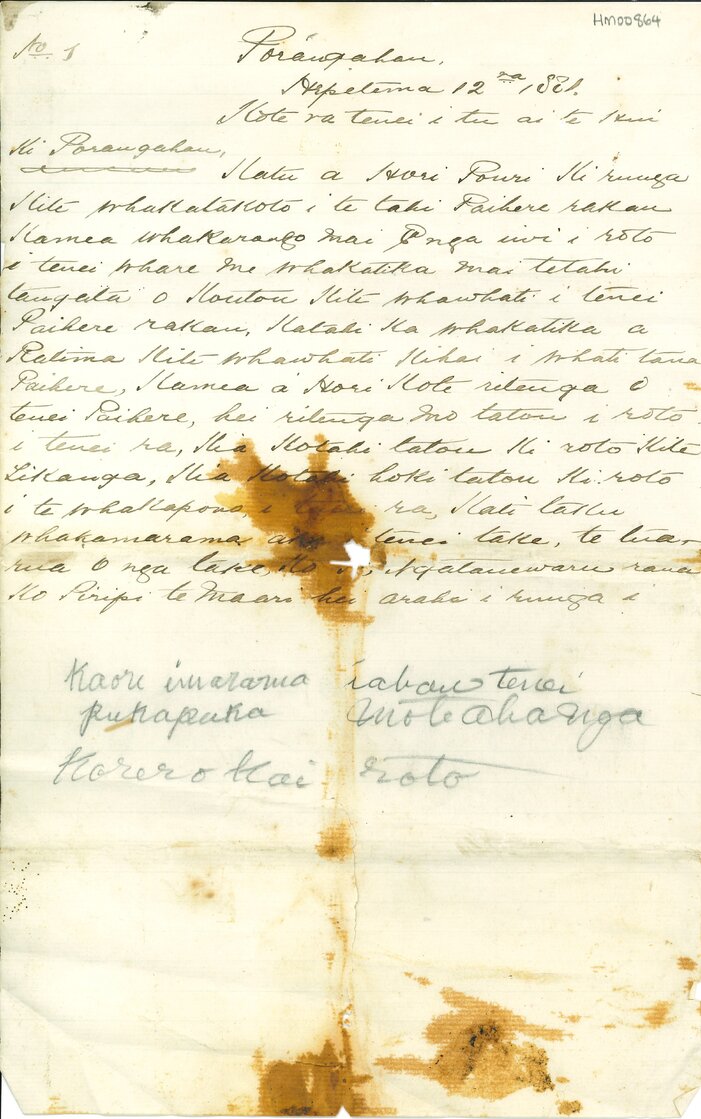 HM00864
No. 1
Porangahau,
Hepetema 12 ra 1881.
Kote ra tenei i tu ai te Hui
Ki Porangahau,
Katu a Hori Pouri Ki runga
Kite whakatakoto i te tahi Paihere rakau
Kamea whakarongo mai e nga iwi i roto
i tenei whare me whakatika mai tetahi
tangata o Koutou Kite whawhati i tenei
Paihere rakau, Katahi Ka whakatika a
Ratima Kite whawhati Kihai i whati tana
Paihere, Kamea a Hori Kote ritenga o
tenei Paihere, hei ritenga mo tatou i roto
i tenei ra, Kia Kotahi tatou Ki roto Kite
Tikanga, Kia Kotahi hoki tatou Ki roto
i te whakapono, i tenei ra, Kati taku
whakamarama tenei take, te tua-
rua O nga take, Ko Ngatanewaru raua
Ko Piripi te Maari hei arahi i runga i
Kaore imarama iahau tenei
pukapuka Moteahanga
Korero Kai roto